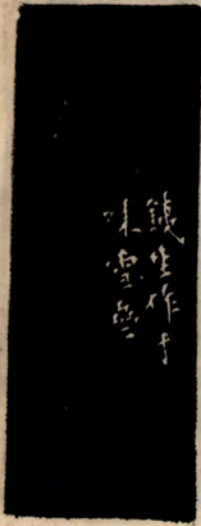 鐵生作于
味雪